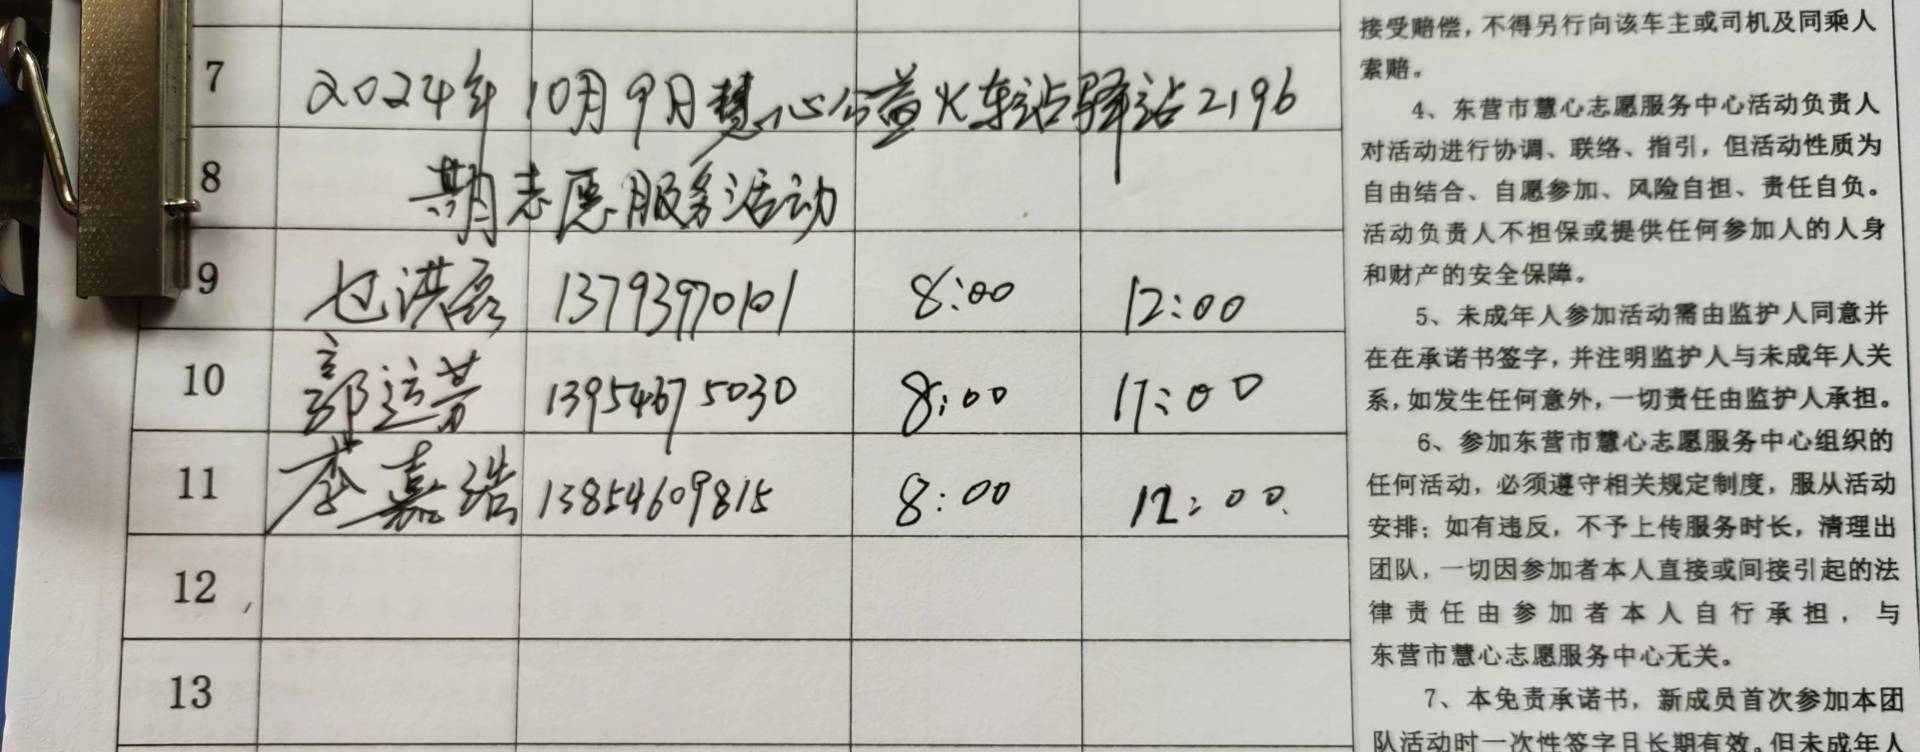 7 2024年10月9月慧心公益火车站驿站2196
8 期志愿服务活动
9 乜洪磊 13793970101 8:00 12:00
10 郭运芳 13954675030 8:00 17:00
11 李嘉浩 13854609815 8:00 12:00
12
13
接受赔偿，不得另行向该车主或司机及同乘人
索赔。
4、东营市慧心志愿服务中心活动负责人
对活动进行协调、联络、指引，但活动性质为
自由结合、自愿参加、风险自担、责任自负。
活动负责人不担保或提供任何参加人的人身
和财产的安全保障。
5、未成年人参加活动需由监护人同意并
在在承诺书签字，并注明监护人与未成年人关
系，如发生任何意外，一切责任由监护人承担。
6、参加东营市慧心志愿服务中心组织的
任何活动，必须遵守相关规定制度，服从活动
安排；如有违反，不予上传服务时长，清理出
团队，一切因参加者本人直接或间接引起的法
律责任由参加者本人自行承担，与
东营市慧心志愿服务中心无关。
7、本免责承诺书，新成员首次参加本团
队活动时一次性签字且长期有效。但未成年人